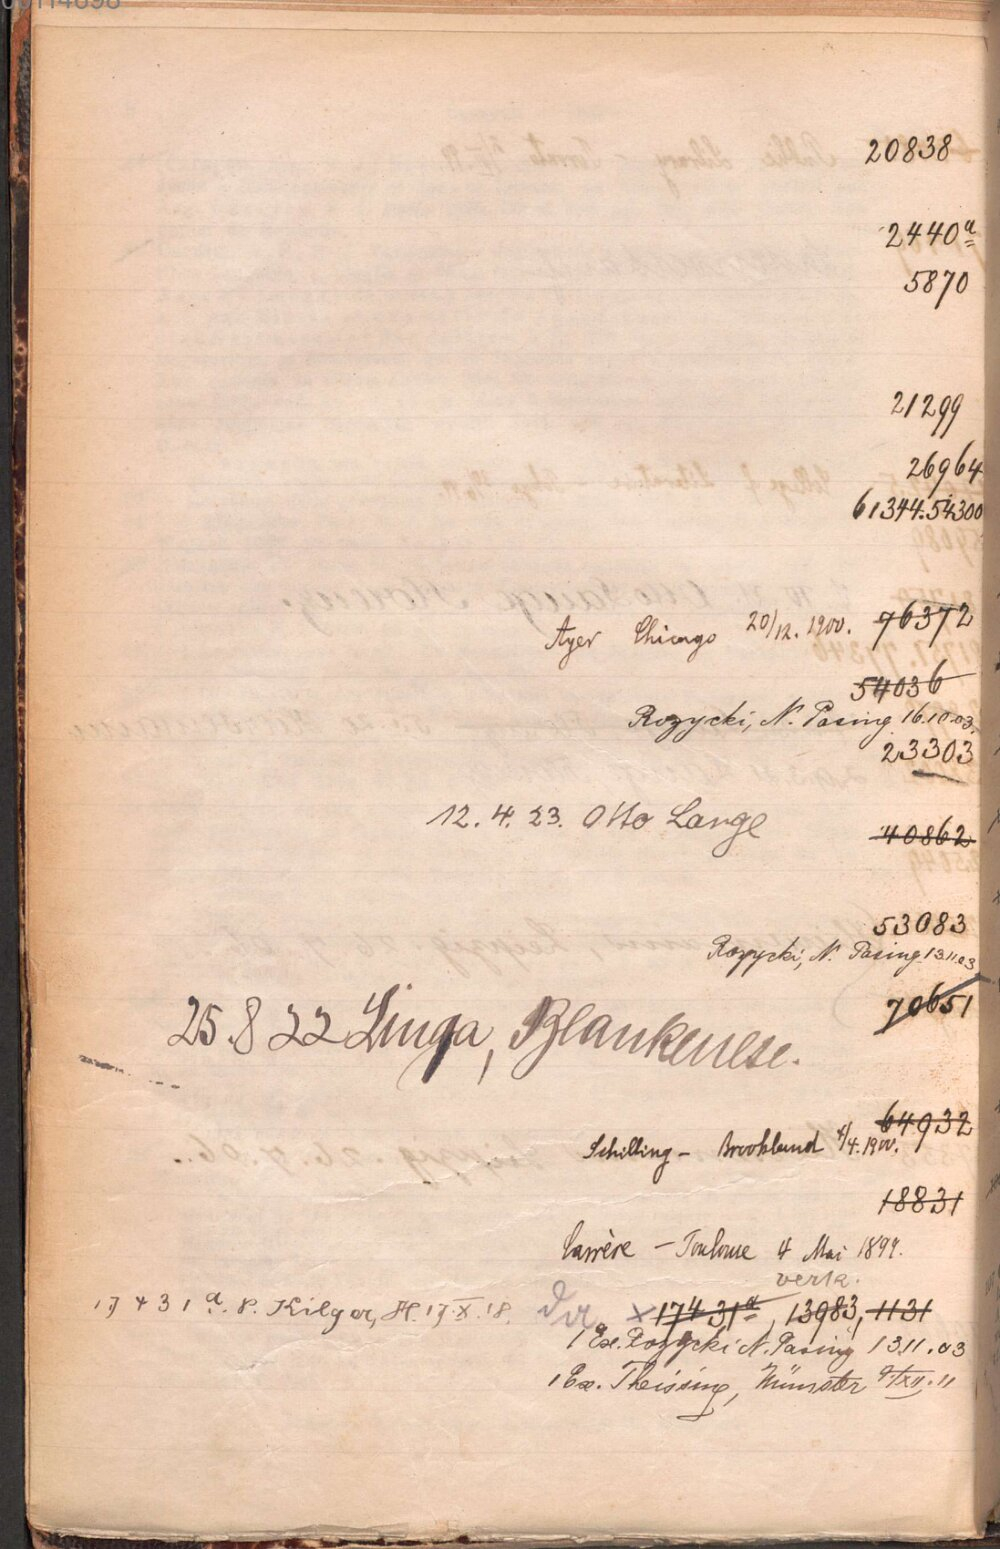 20838
2440a
5870
21299
26964
61344.54300
Ayer Chicago 20/12. 1900. 76372
54036
Rozycki, N. Pasing 16.10.03.
23303
12. 4. 23. Otto Lange
40862
53083
Rozycki, N. Pasing 13.11.03
70651
25.8 22 Linga, Blankenese.
64932
Schilling – Brookland 4/4. 1900.
18831
Carrère – Toulouse 4 Mai 1899.
verk.
17431a. P. Kilger, H. 17.X.18. ×17431a, 13983, 1131
1 Ex. Rozycki N. Pasing 13.11.03
1 Ex. Theissing, Münster 9/XII.11